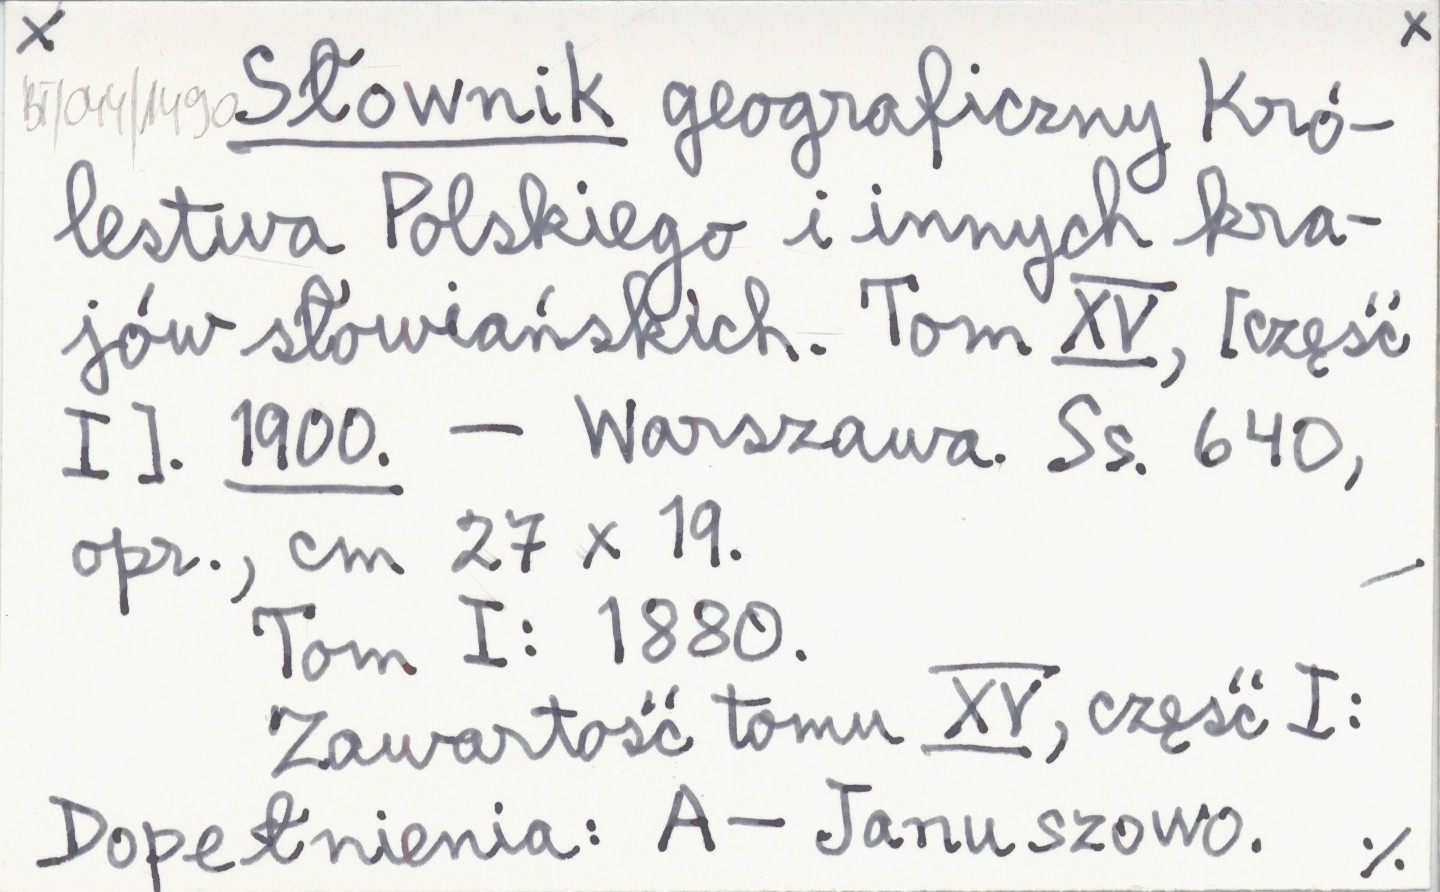 x x
BT/044/1490 Słownik geograficzny Kró-
lestwa Polskiego i innych kra-
jów słowiańskich. Tom XV, [część
I]. 1900. — Warszawa. Ss. 640,
opr., cm 27 x 19.
Tom I: 1880.
Zawartość tomu XV, część I:
Dopełnienia: A — Januszowo. ./.